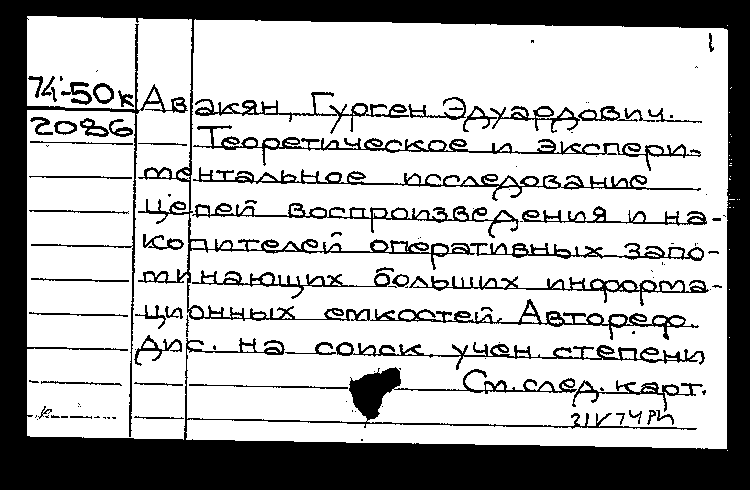 1
74-50к
2086
Авакян, Гурген Эдуардович.
Теоретическое и экспери-
ментальное исследование
цепей воспроизведения и на-
копителей оперативных запо-
минающих больших информа-
ционных емкостей. Автореф.
дис. на соиск. учен. степени
См. след. карт.